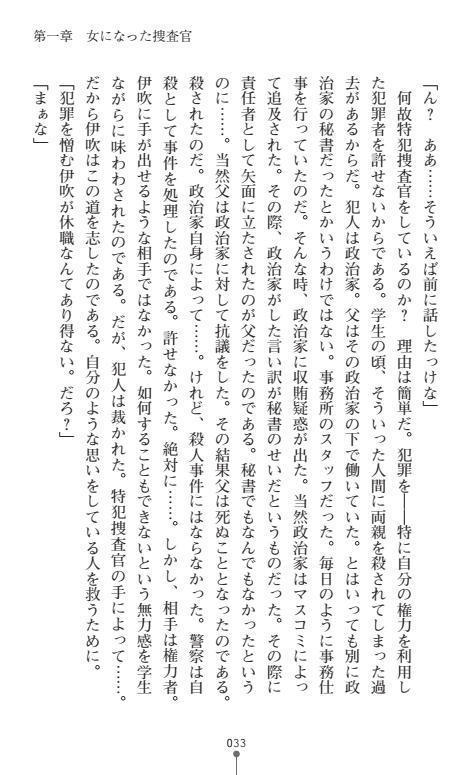 第一章 女になった捜査官
「ん? ああ……そういえば前に話したっけな」
　何故特犯捜査官をしているのか? 理由は簡単だ。犯罪を――特に自分の権力を利用し
た犯罪者を許せないからである。学生の頃、そういった人間に両親を殺されてしまった過
去があるからだ。犯人は政治家。父はその政治家の下で働いていた。とはいっても別に政
治家の秘書だったとかいうわけではない。事務所のスタッフだった。毎日のように事務仕
事を行っていたのだ。そんな時、政治家に収賄疑惑が出た。当然政治家はマスコミによっ
て追及された。その際、政治家がした言い訳が秘書のせいだというものだった。その際に
責任者として矢面に立たされたのが父だったのである。秘書でもなんでもなかったという
のに……。当然父は政治家に対して抗議をした。その結果父は死ぬこととなったのである。
殺されたのだ。政治家自身によって……。けれど、殺人事件にはならなかった。警察は自
殺として事件を処理したのである。許せなかった。絶対に……。しかし、相手は権力者。
伊吹に手が出せるような相手ではなかった。如何することもできないという無力感を学生
ながらに味わわされたのである。だが、犯人は裁かれた。特犯捜査官の手によって……。
だから伊吹はこの道を志したのである。自分のような思いをしている人を救うために。
「犯罪を憎む伊吹が休職なんてあり得ない。だろ?」
「まぁな」
033